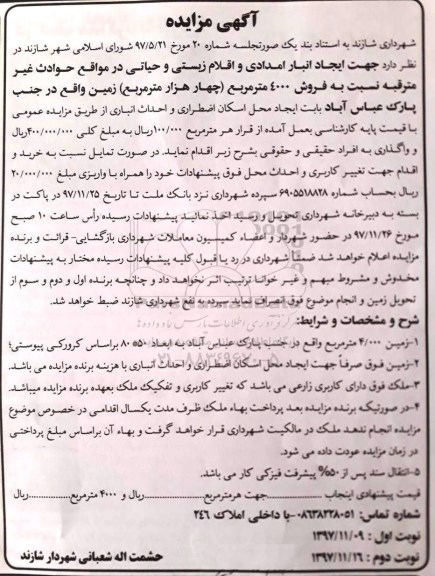 آگهی مزایده
شهرداری شازند به استناد بند یک صورتجلسه شماره ۲۰ مورخ ۹۷/۵/۲۱ شورای اسلامی شهر شازند در
نظر دارد جهت ایجاد انبار امدادی و اقلام زیستی و حیاتی در مواقع حوادث غیر
مترقبه نسبت به فروش ۴۰۰۰ مترمربع (چهار هزار مترمربع) زمین واقع در جنب
پارک عباس آباد بابت ایجاد محل اسکان اضطراری و احداث انباری از طریق مزایده عمومی و
با قیمت پایه کارشناسی بعمل آمده از قرار هر مترمربع ۱۰۰/۰۰۰ ریال به مبلغ کلی ۴۰۰/۰۰۰/۰۰۰ ریال
و واگذاری به افراد حقیقی و حقوقی بشرح زیر اقدام نماید. در صورت تمایل نسبت به خرید و
اقدام جهت تغییر کاربری و احداث محل فوق پیشنهادات خود را همراه با واریزی مبلغ ۲۰/۰۰۰/۰۰۰
ریال بحساب شماره ۶۹۰۵۵۱۸۸۲۸ سپرده شهرداری نزد بانک ملت تا تاریخ ۹۷/۱۱/۲۵ در پاکت در
بسته به دبیرخانه شهرداری تحویل و رسید اخذ نمایید پیشنهادات رسیده رأس ساعت ۱۰ صبح
مورخ ۹۷/۱۱/۲۶ در حضور شهردار و اعضاء کمیسیون معاملات شهرداری بازگشایی- قرائت و برنده
مزایده اعلام خواهد شد ضمنا شهرداری در رد یا قبول کلیه پیشنهادات رسیده مختار به پیشنهادات
مخدوش و مشروط مبهم و غیر خوانا ترتیب اثر نخواهد داد و چنانچه برنده اول و دوم و سوم از
تحویل زمین و انجام موضوع فوق انصراف نماید سپرده به نفع شهرداری شازند ضبط خواهد شد.
شرح و مشخصات و شرایط:
۱-زمین ۴/۰۰۰ مترمربع واقع در جنب پارک عباس آباد به ابعاد ۵۰*۸۰ براساس کروکی پیوستی؛
۲-زمین فوق صرفاً جهت ایجاد محل اسکان اضطراری و احداث انباری با هزینه برنده مزایده می باشد.
۳-ملک فوق دارای کاربری زارعی می باشد که تغییر کاربری و تفکیک ملک بعهده برنده مزایده میباشد.
۴-در صورتیکه برنده مزایده بعد پرداخت بهاء ملک ظرف مدت یکسال اقدامی در خصوص موضوع
مزایده انجام ندهد ملک در مالکیت شهرداری قرار خواهد گرفت و بهاء آن براساس مبلغ پرداختی
در زمان مزایده عودت داده می شود.
۵-انتقال سند پس از ۵۰% پیشرفت فیزیکی کار می باشد.
قیمت پیشنهادی اینجاب ................ جهت هرمترمربع ................ ریال و ۴۰۰۰ مترمربع ................ ریال
شماره تماس: ۰۸۶۳۸۲۲۸۰۵۱-با داخلی املاک ۲۴۶
نوبت اول : ۱۳۹۷/۱۱/۰۹
نوبت دوم : ۱۳۹۷/۱۱/۱۶ حشمت اله شعبانی شهردار شازند